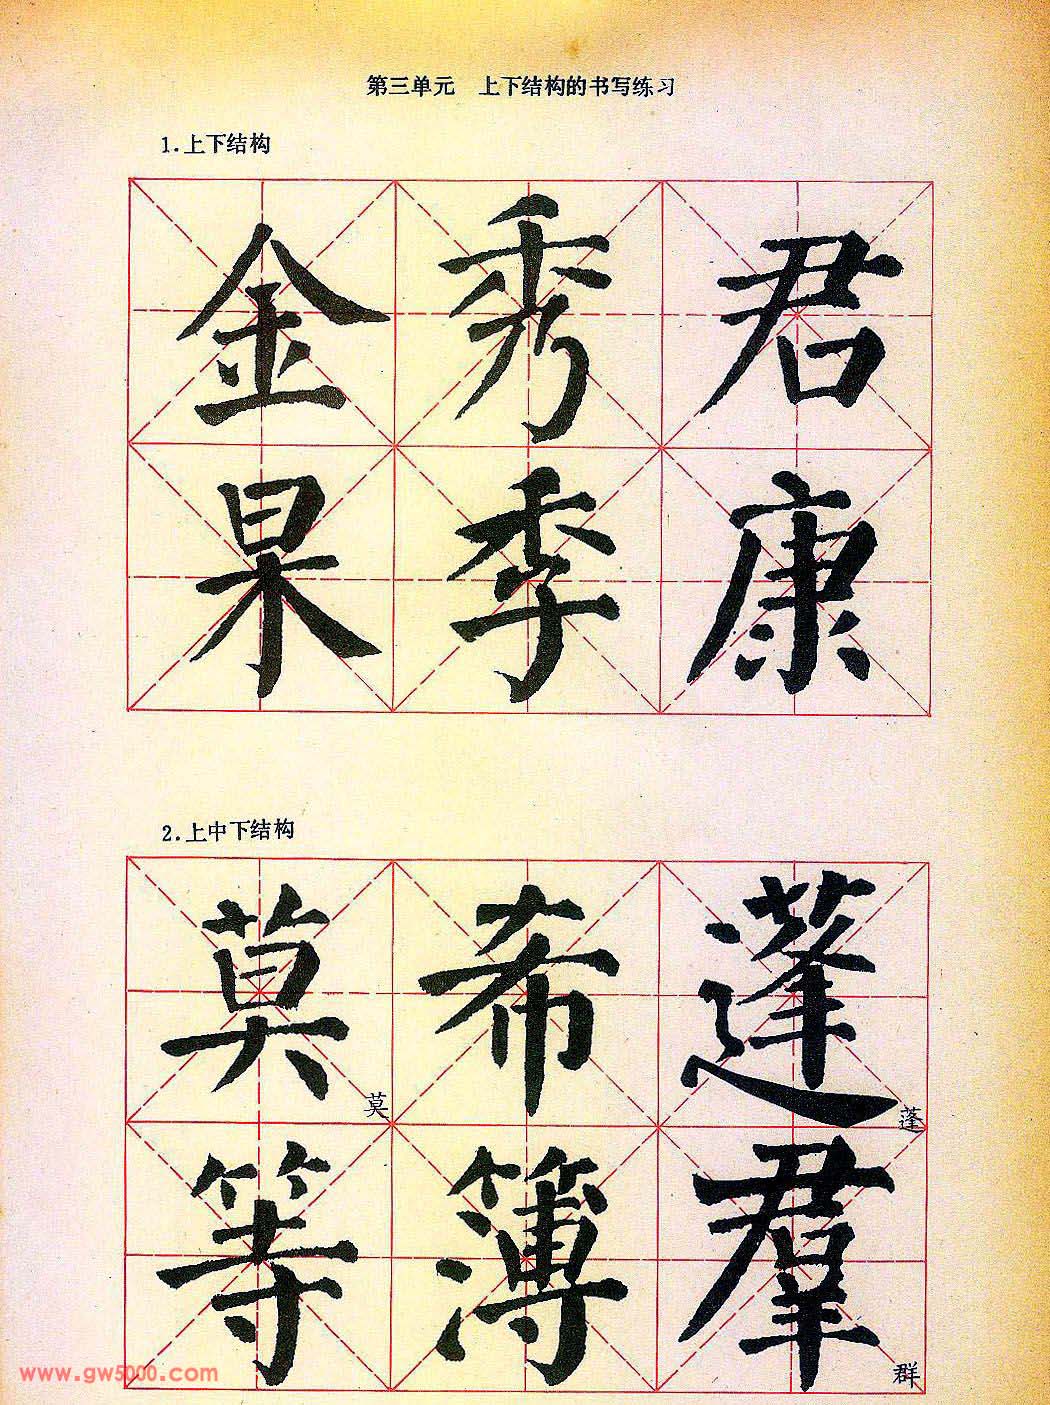 第三单元 上下结构的书写练习
1.上下结构
金 秀 君
果 季 康
2.上中下结构
莫 希 蓬
莫 蓬
等 簿 羣
群
www.gw5000.com